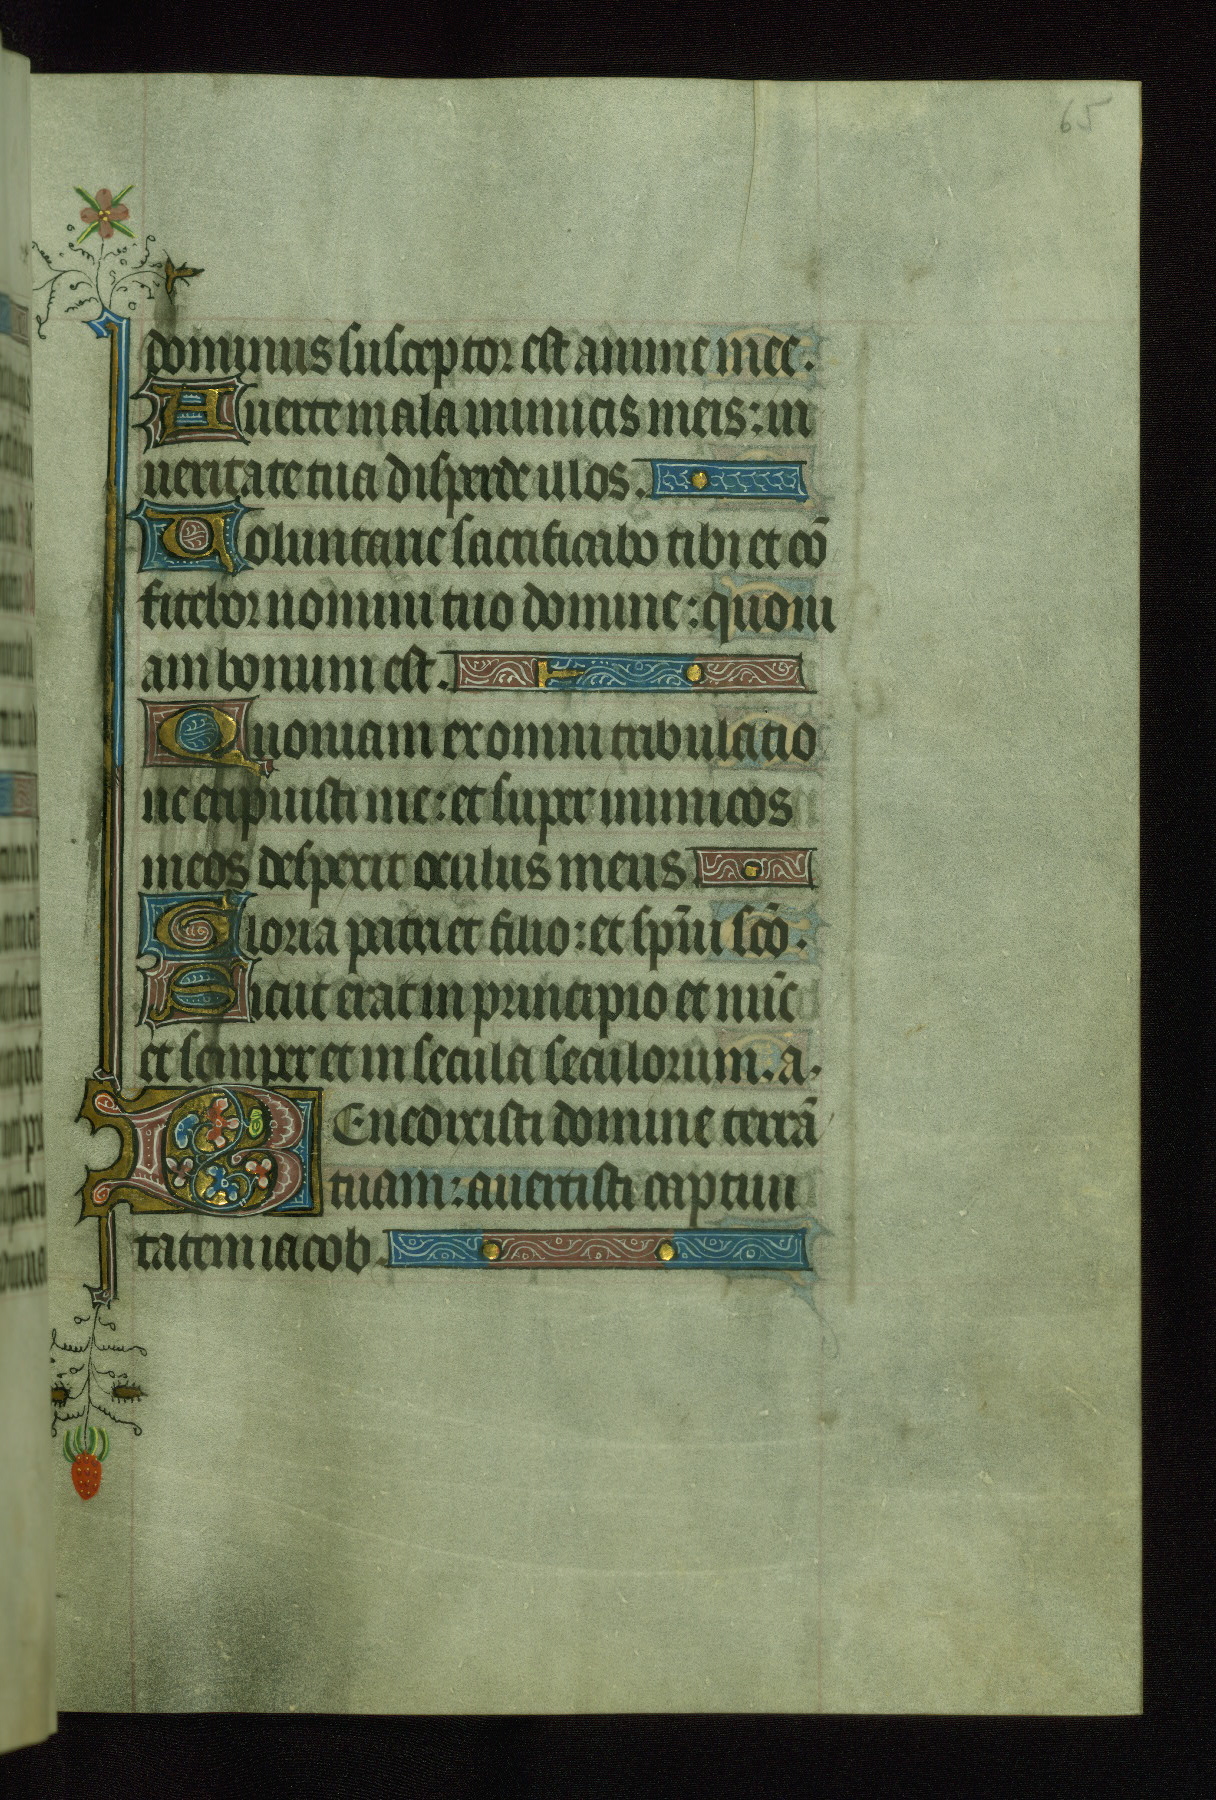 65
dominus susceptor est anime mee.
Auerte mala inimicis meis: in
ueritate tua disperde illos.
Voluntarie sacrificabo tibi et cō
fitebor nomini tuo domine: quoni
am bonum est.
Quoniam ex omni tribulatio
ne eripuisti me: et super inimicos
meos despexit oculus meus
Gloria patri et filio: et spūi scō.
Sicut erat in principio et nūc
et semper et in secula seculorum. a.
BEnedixisti domine terrā
tuam: auertisti captiui
tatem iacob.